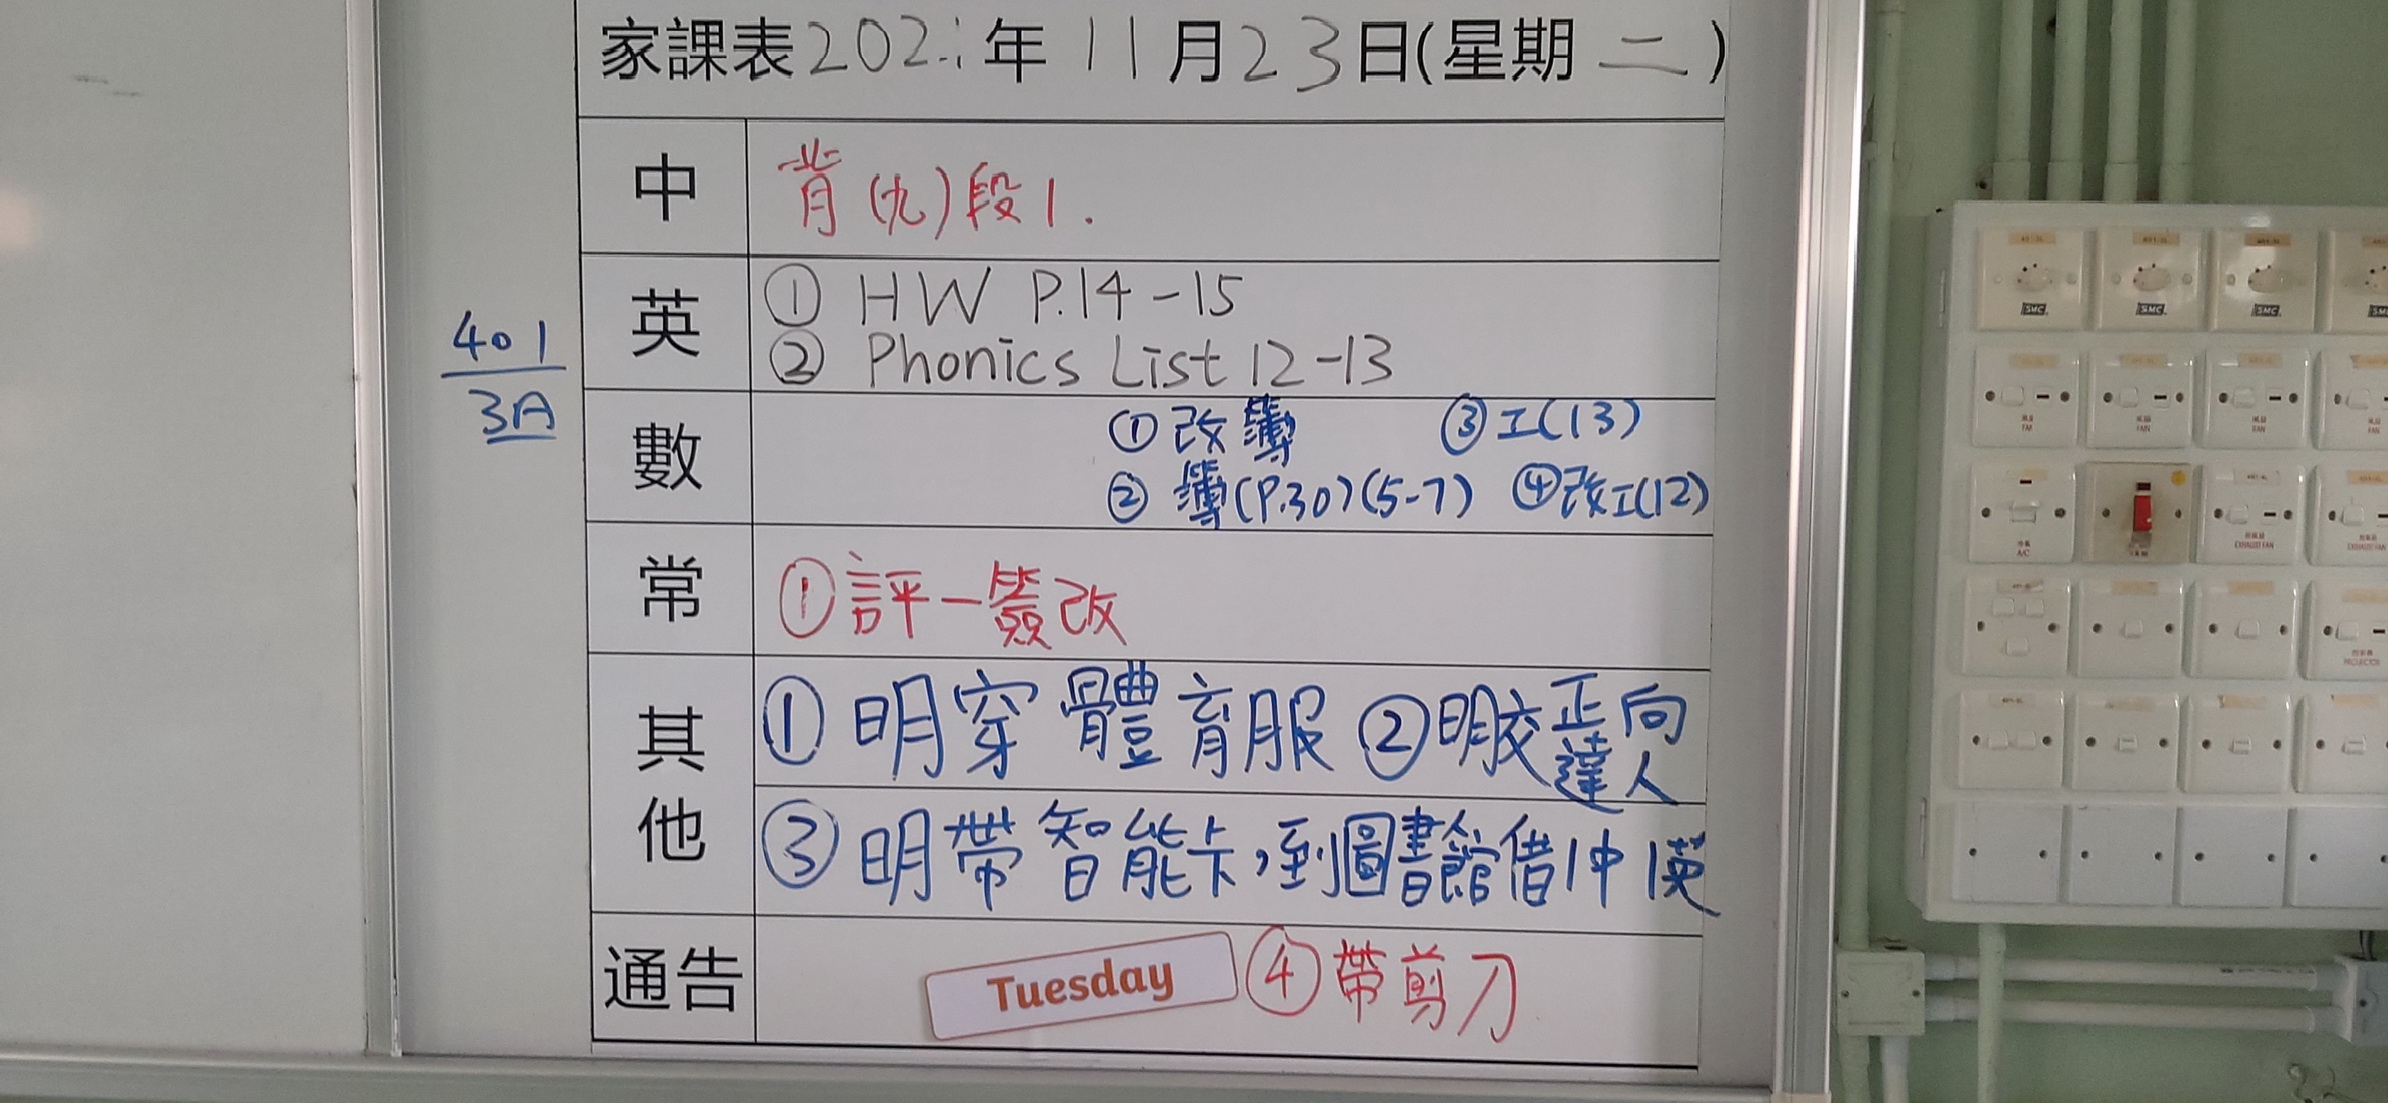 家課表2021年11月23日(星期二)
中 背(九)段1.
英 ① HW P.14-15
② Phonics List 12-13
401
3A
數 ①改簿 ③工(13)
②簿(P.30)(5-7) ④改工(12)
常 ①評一簽改
其他 ①明穿體育服 ②明交正向達人
③明帶智能卡,到圖書館借1中1英
通告 Tuesday ④帶剪刀
SMC SMC SMC
A/C EXHAUST FAN EXHAUST FAN
PROJECTOR